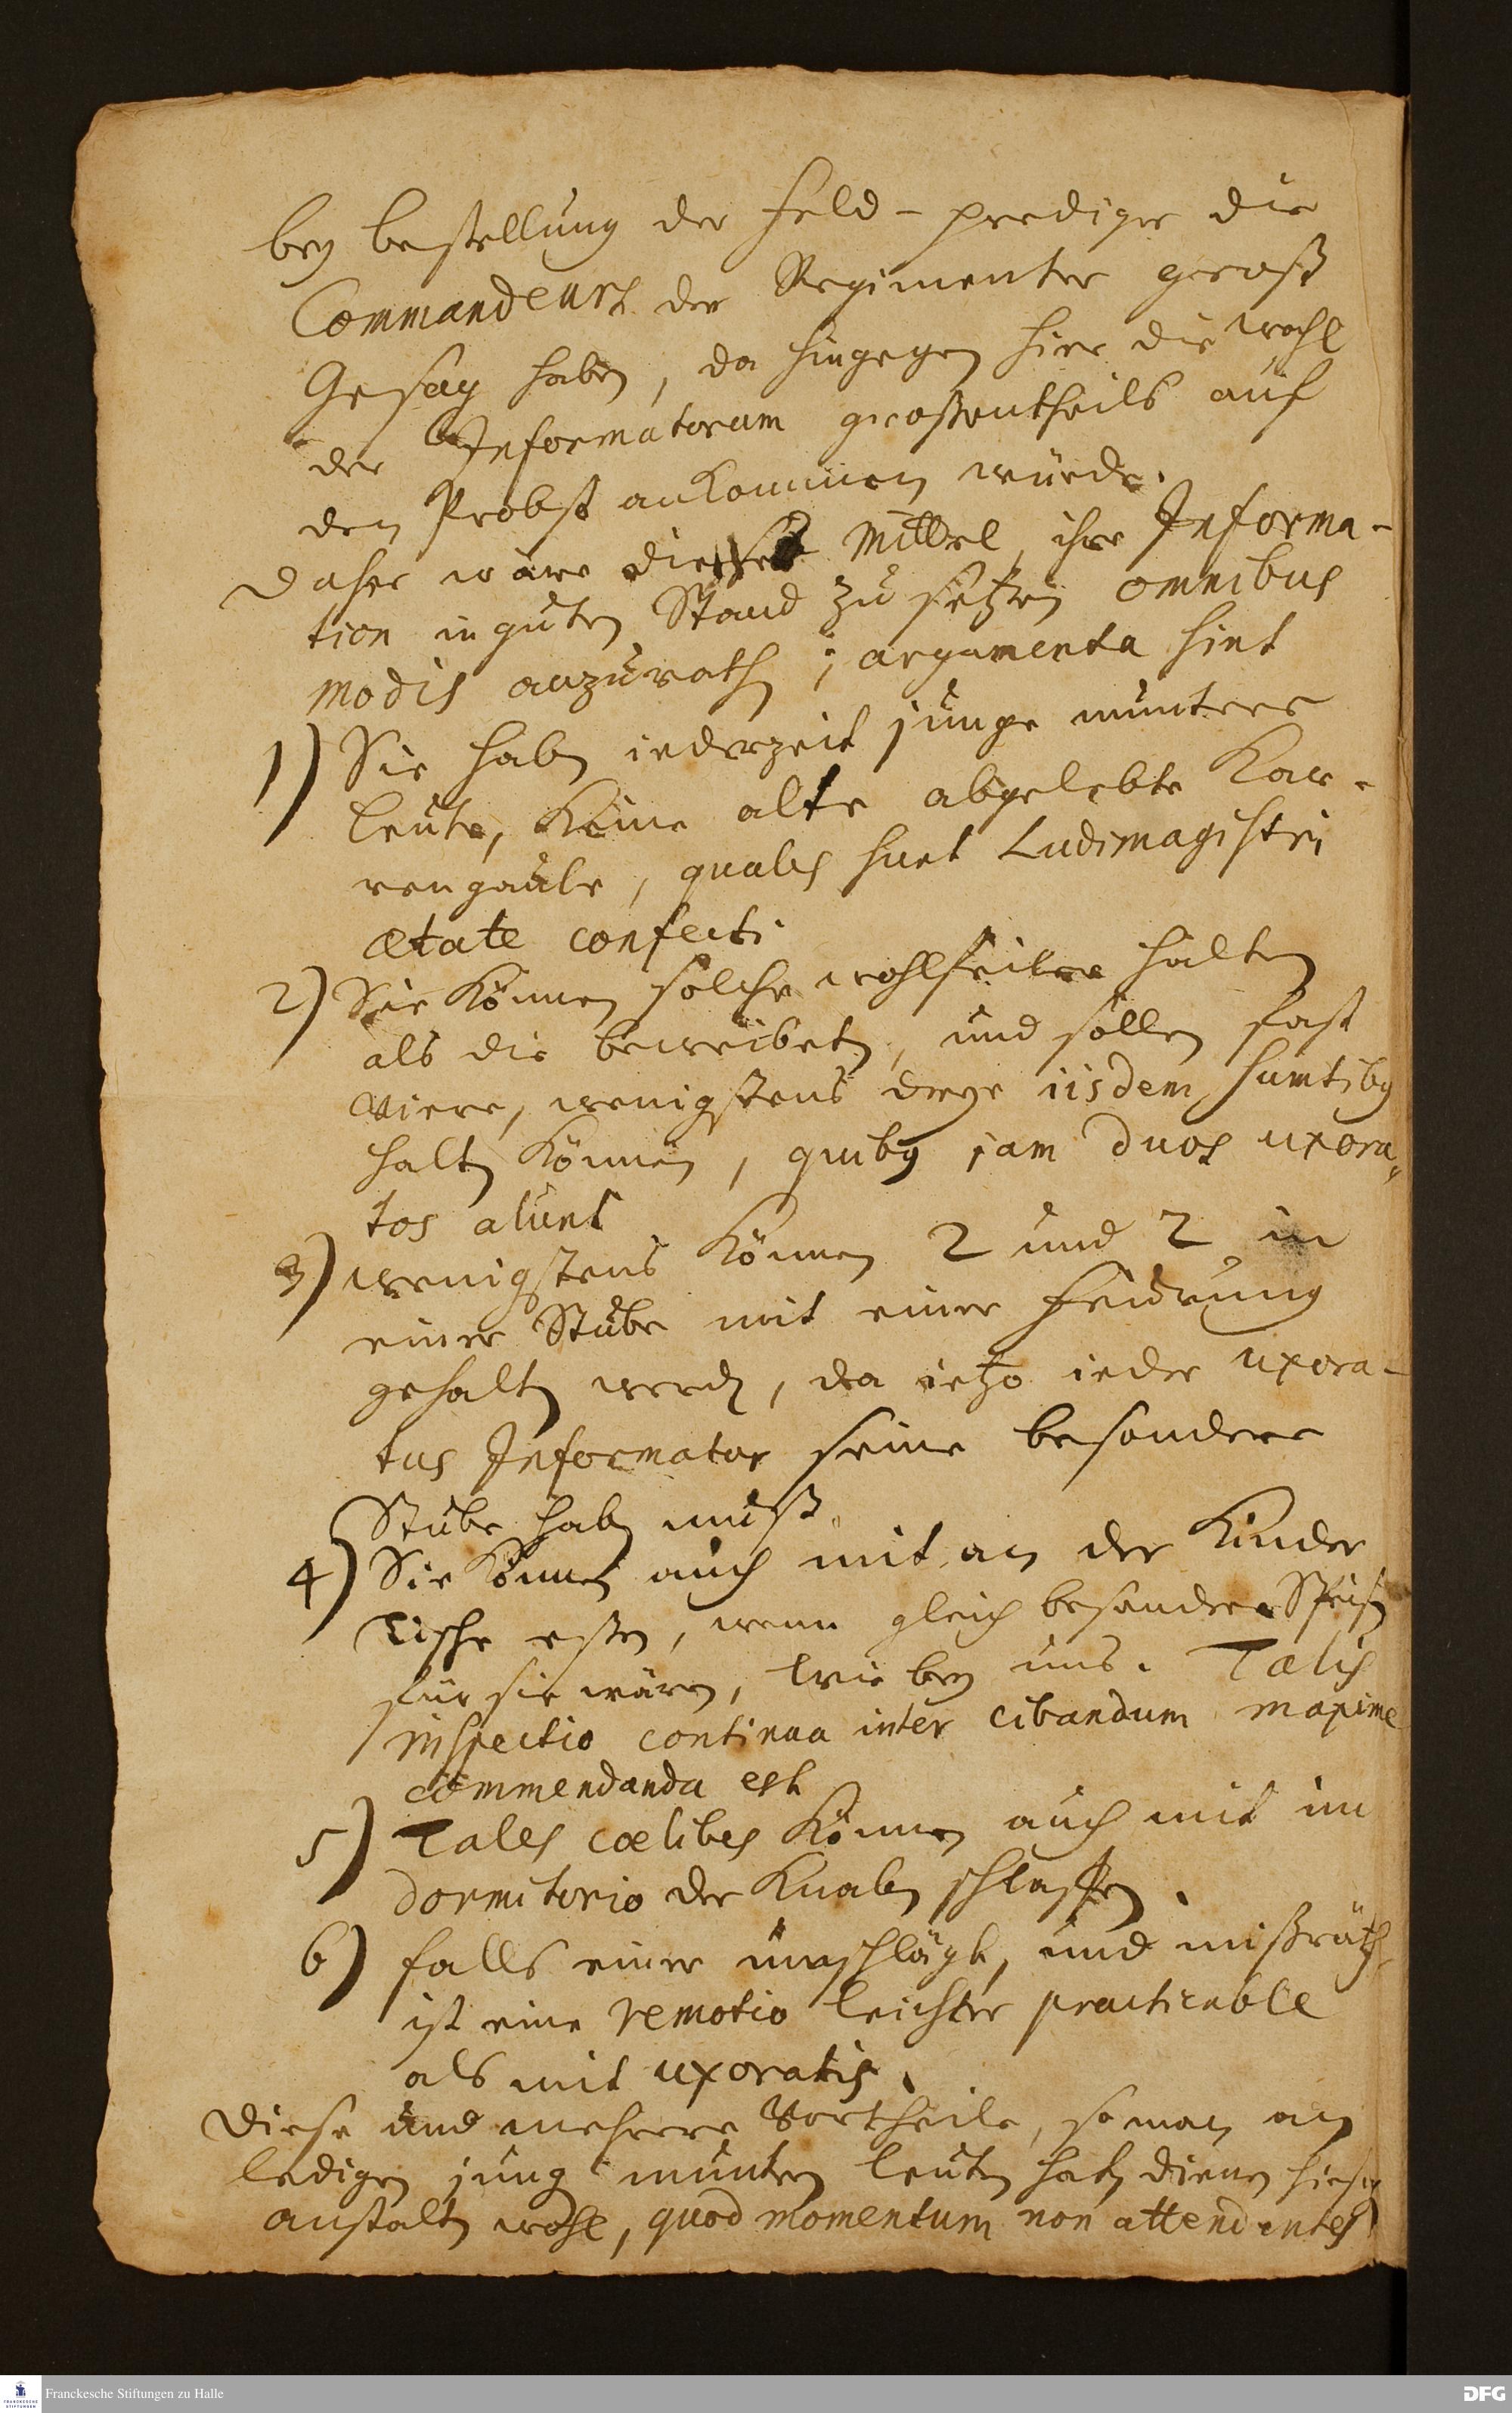 bey bestellung der Feld-prediger die
Commandeurs der Regimenter groß
Gesag haben, da hingegen hier die wahl
der Informatorum großentheils auf
den Probst ankommen würde.
Daher wäre dieses Mittel, ihre Informa-
tion in guten Stand zu setzen omnibus
modis anzurathen; argumenta sint
1) Sie haben iederzeit junge muntere
leute, keine alte abgelebte Kar-
rengaule, quales sunt Ludimagistri
ætate confecti
2) Sie können solche wohlfeiler halten
als die beweibeten, und sollen fast
Viere, wenigstens dreye iisdem sumtibus
halten können, quibus jam duos uxora-
tos alunt
3) wenigstens können 2 und 2 in
einer Stube mit einer Feurung
gehalten werden, da ietzo ieder uxora-
tus Informator seine besondere
Stube haben muß.
4) Sie können auch mit an der Kinder
Tische essen, wenn gleich besondere Speisen
für sie wären, wie bey uns. Talis
inspectio continua inter cibandum maxime
commendanda est
5) Tales cœlibes können auch mit im
dormitorio der Knaben schlaffen.
6) falls einer umschlägt, und mißräth,
ist eine remotio leichter practicable
als mit uxoratis.
Diese und mehrere Vortheile, so man an
ledigen jung muntern leuten hat, dienen hiesigen
anstalten wohl, quod momentum non attendentes
Franckesche Stiftungen zu Halle
DFG